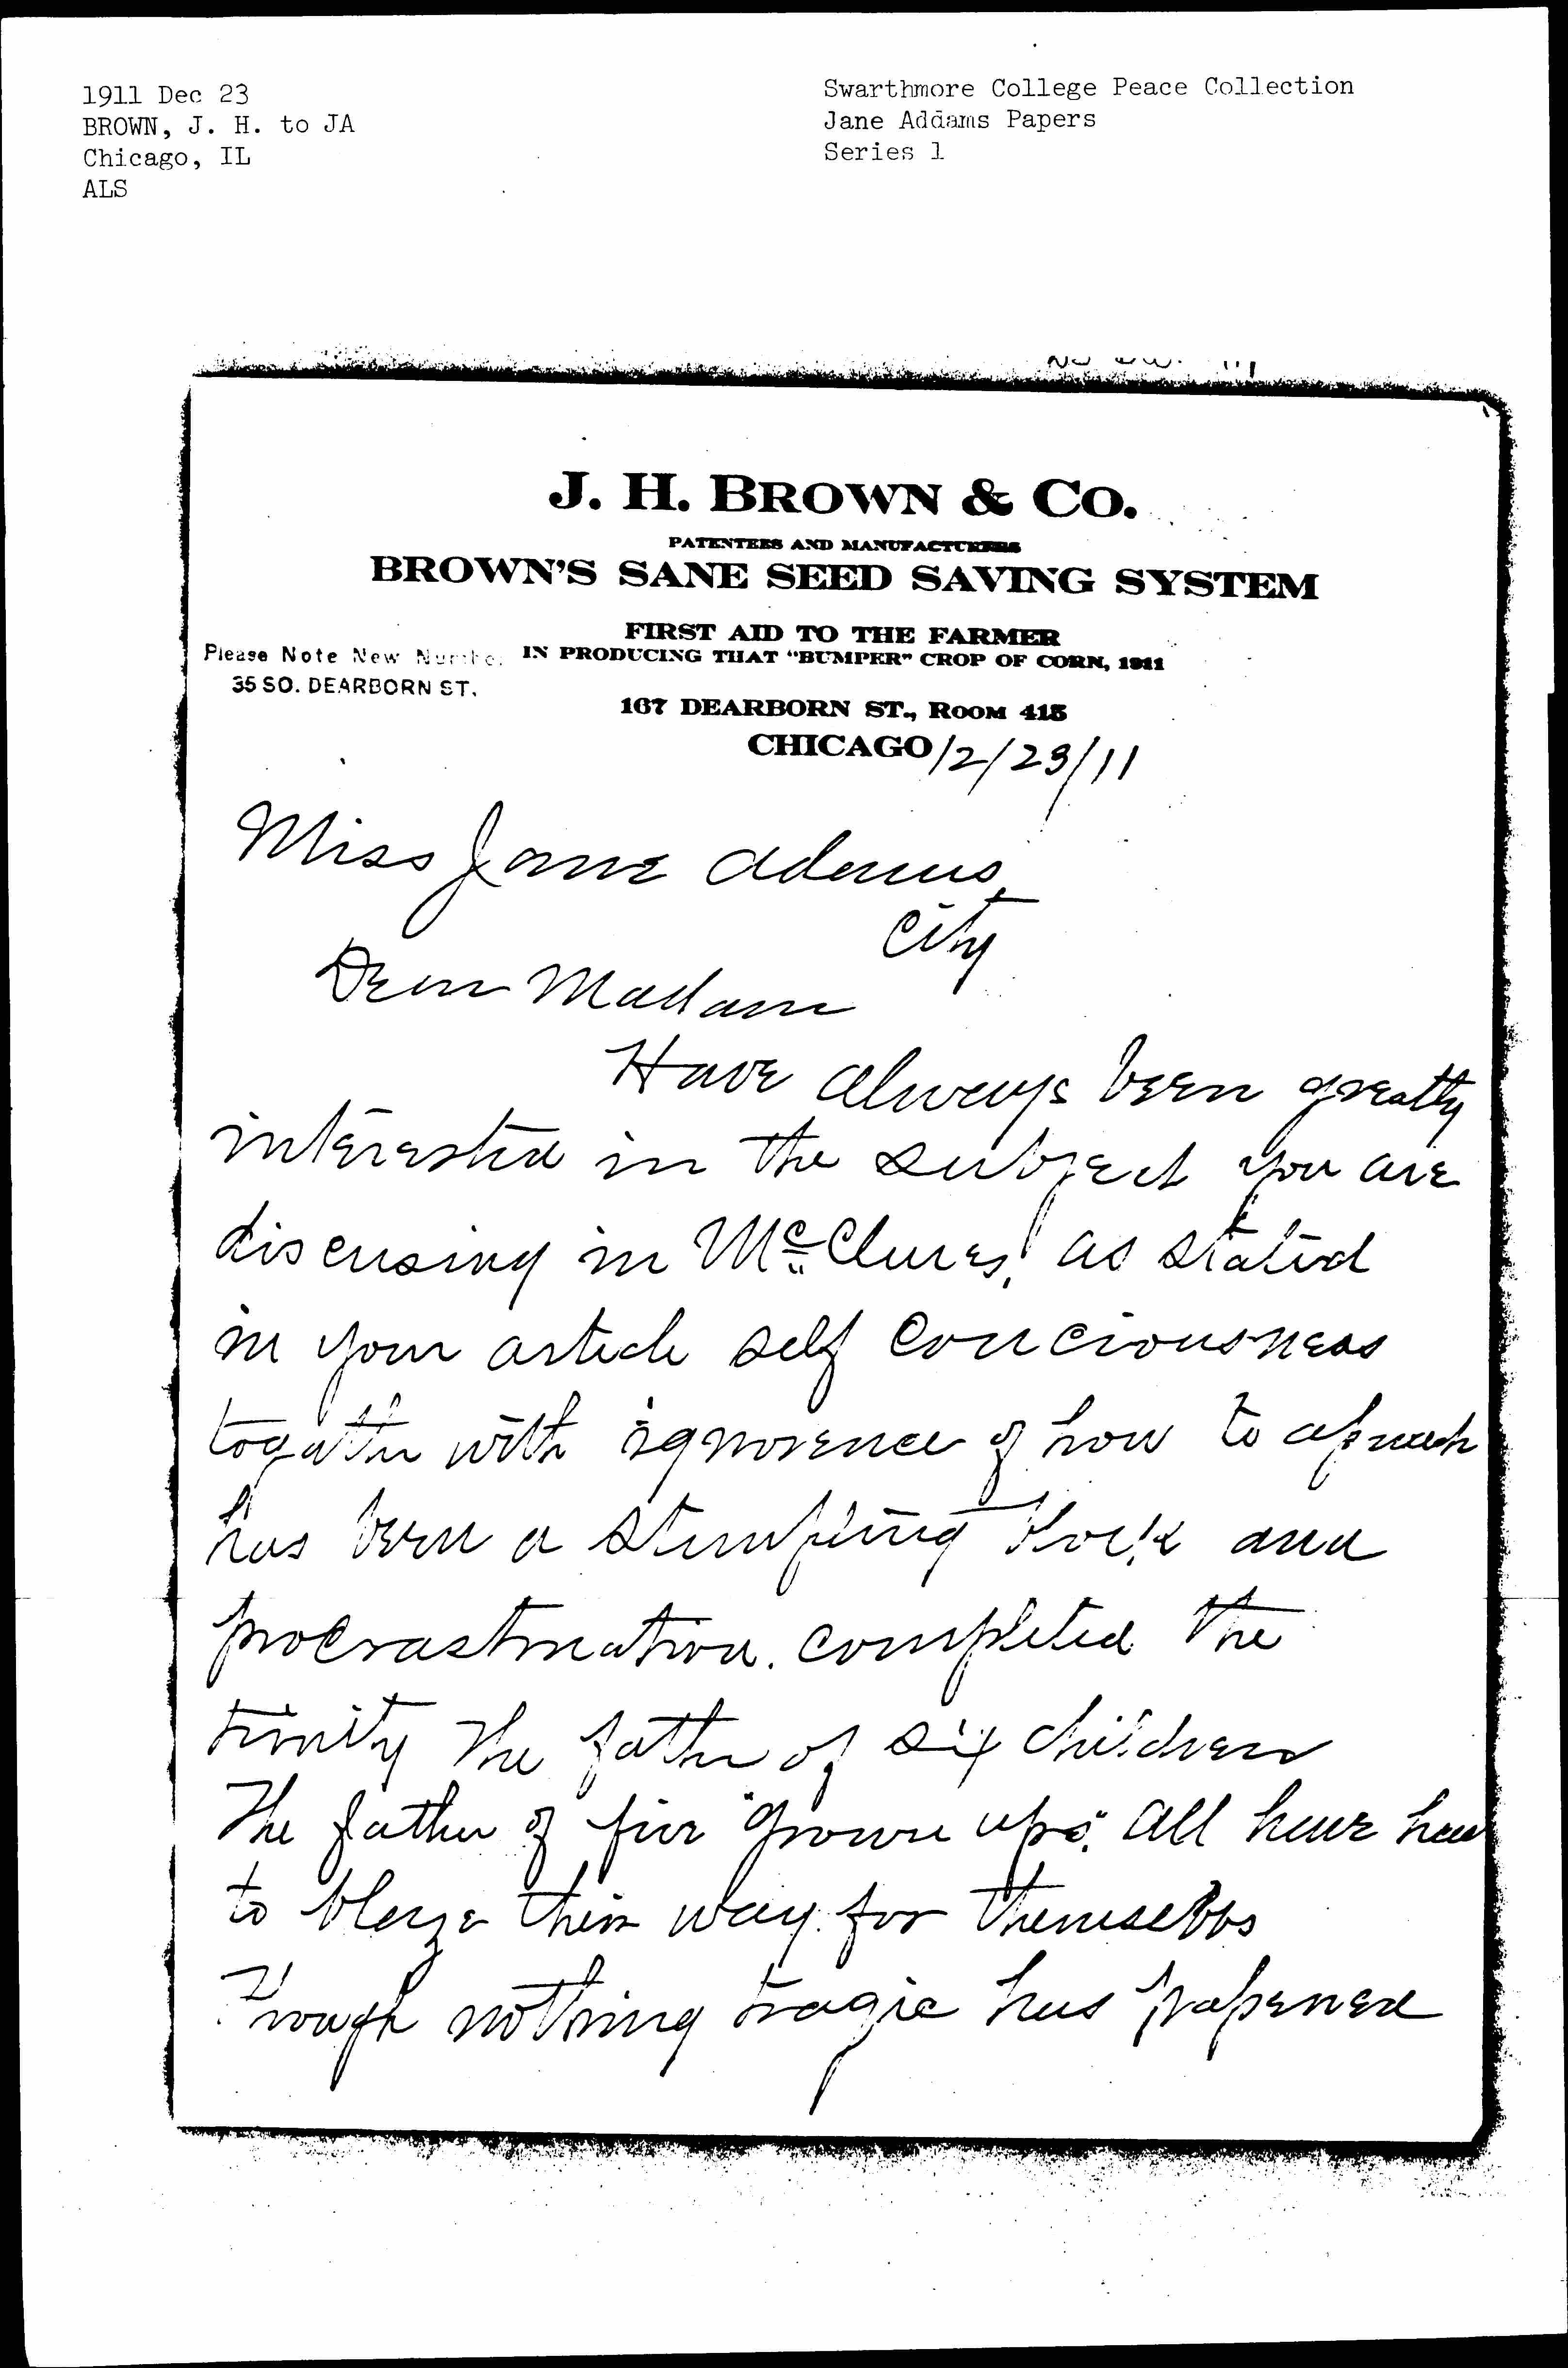 1911 Dec 23
BROWN, J. H. to JA
Chicago, IL
ALS
Swarthmore College Peace Collection
Jane Addams Papers
Series 1
J. H. BROWN & CO.
PATENTEES AND MANUFACTURERS
BROWN'S SANE SEED SAVING SYSTEM
FIRST AID TO THE FARMER
IN PRODUCING THAT "BUMPER" CROP OF CORN, 1911
Please Note New Number
35 SO. DEARBORN ST.
167 DEARBORN ST., ROOM 415
CHICAGO 12/23/11
Miss Jane Adams,
City
Dear Madam
Have always been greatly
interested in the subject you are
discusing in McClures, as stated
in your article self conciousness
togather with ignorence of how to
has been a block and
procrastination. completed the
trinity The father of six children
The father of five "grown ups". All have had
to blaze their way for themselves
Though nothing tragic has hapened